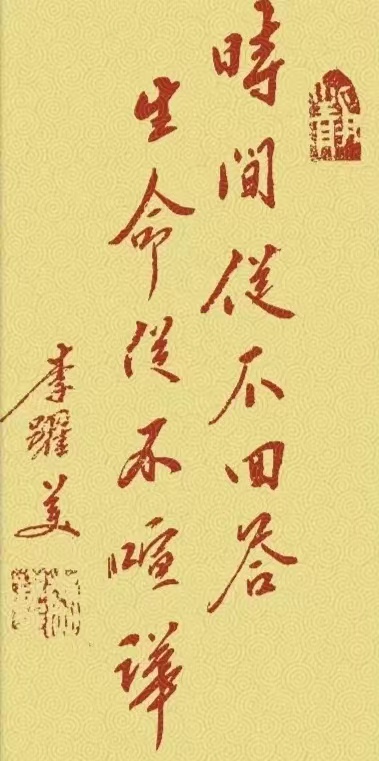 時間從不回答
生命從不喧嘩
李躍美